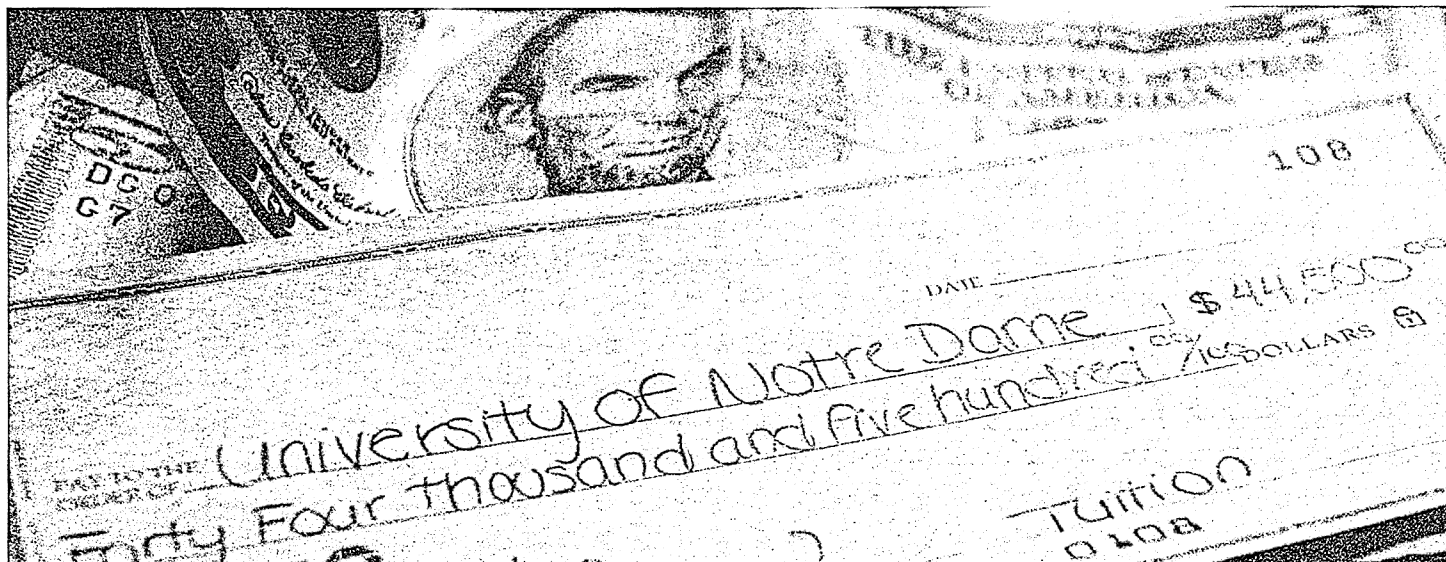 THE UNITED STATES
OF AMERICA
DG 0
G7
108
DATE
PAY TO THE
ORDER OF University of Notre Dame $ 44,500 00
Forty Four thousand and five hundred 00/100 DOLLARS
Tuition
0108